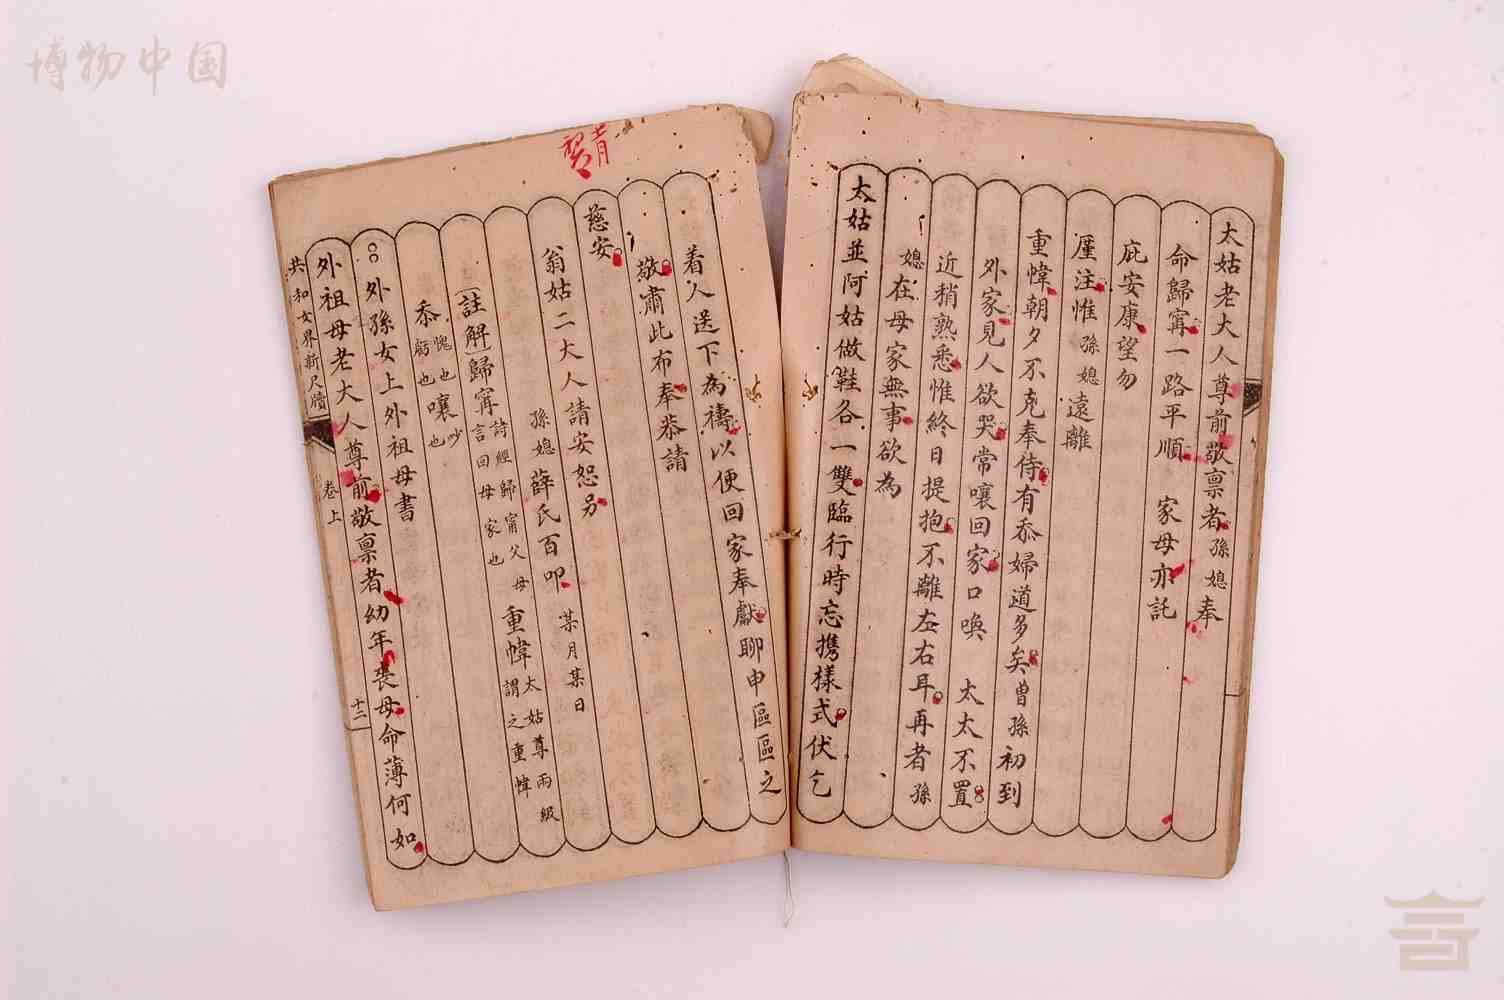 博物中国
太姑老大人尊前敬禀者孫媳奉
命歸寗一路平順 家母亦託
庇安康望勿
厪注惟孫媳遠離
重幃朝夕不克奉侍有忝婦道多矣曽孫初到
外家見人欲哭常嚷回家口喚 太太不置
近稍熟悉惟終日提抱不離左右耳再者孫
媳在母家無事欲為
太姑並阿姑做鞋各一雙臨行時忘携樣式伏乞
着人送下為禱以便回家奉獻聊申區區之
敬肅此布奉恭請
慈安
翁姑二大人請安恕另
孫媳薛氏百叩 某月某日
〔註解〕歸寗詩經歸寗父母言回母家也 重幃太姑尊兩級謂之重幃
忝愧也虧也 嚷吵也
外孫女上外祖母書
外祖母老大人尊前敬禀者幼年喪母命薄何如
共和女界新尺牘 卷上 十二